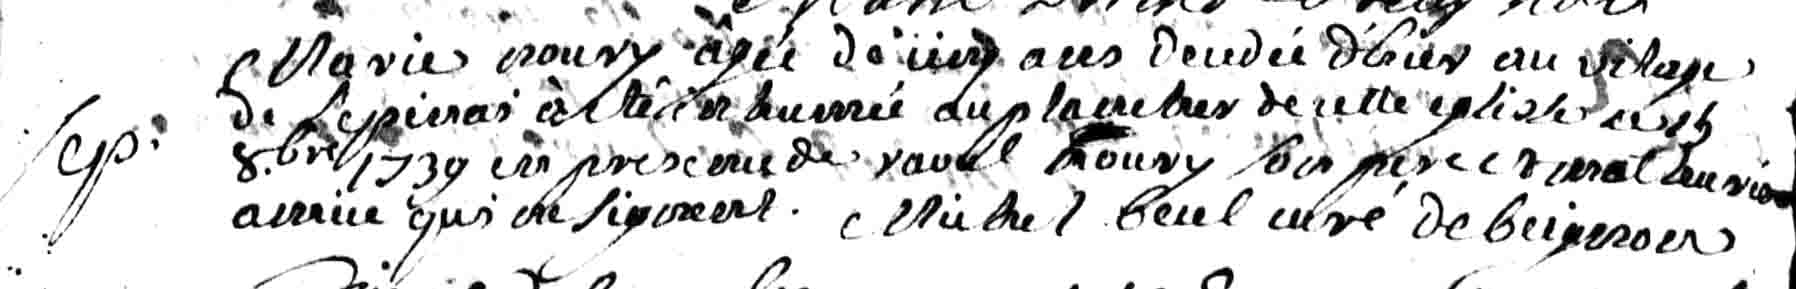 Sep.
Marie noury âgée de cinq ans decedée d'hier au vilage
de l'epinai à été inhumée au placitre de cette eglise ce 15
8.bre 1739 en presence de raoul noury son pere et mathurin
amice qui ne signent. Michel beul curé de beignon